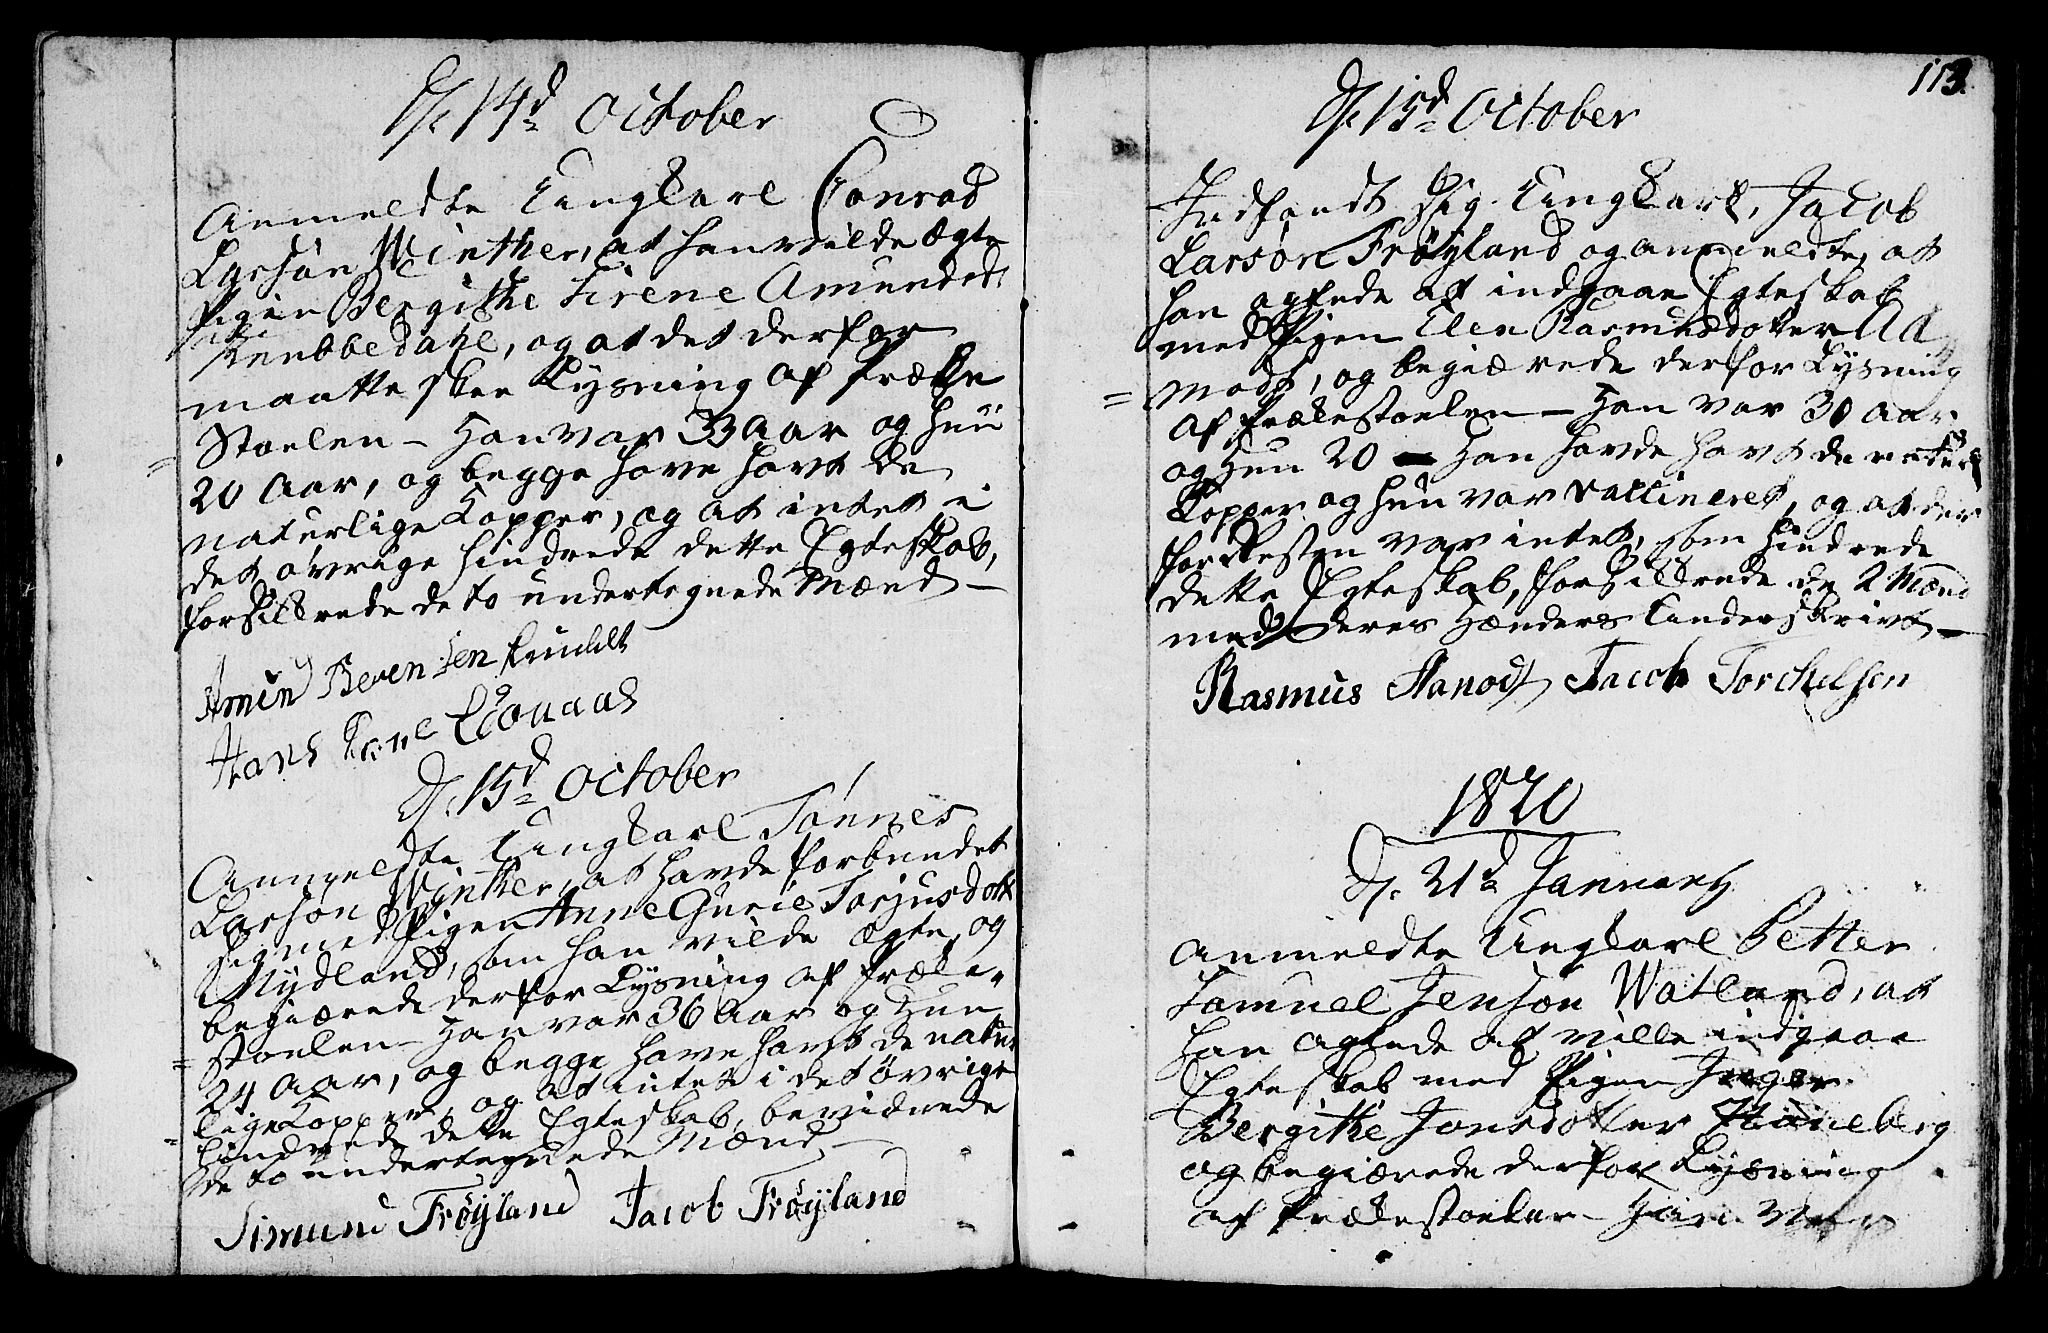 D. 14d October
Anmeldte Ungkarl Conrad
Larsøn Winther, at han vilde ægte
Pigen Bergithe Sirene Amundsdt
Knubbedahl, og at det derfor
maatte skee Lysning af Præke
Stoelen – Han var 33 Aar og hun
20 Aar, og begge have havt de
naturlige Kopper, og at intet i
det øvrige hindrede dette Egteskab,
forsikkrede de to undertegnede Mænd –
Amun Beven
Hans
D. 15d October
Anmeldte Ungkarl Tønnes
Larsøn Winther, at havde forbundet
sig med Pigen Anne Gurie Torjusdott
Nydland, som han vilde ægte, og
begiærede derfor Lysning af Præke-
stoelen – Han var 36 Aar og Hun
24 Aar, og begge have havt de natur
lige Kopper, og at intet i det øvrige
hindrede dette Egteskab, bevidnede
de to undertegnede Mænd –
Simund Frøÿland Jacob Frøÿland
113.
D. 15d October
Indfandt sig Ungkarl, Jacob
Larsøn Frøÿland og anmeldte, at
han agtede at indgaae Egteskab
med Pigen Elen Rasmusdotter Aa
modt, og begiærede derfor Lysning
af Prækestoelen – Han var 30 Aar
og Hun 20 – Han havde havt de naturl
Kopper og hun var vaccineret, og at der
forresten var intet, som hindrede
dette Egteskab, forsikkrede de 2 Mænd
med deres Hænders Underskrivt –
Rasmus Aamodt Jacob Torchelsen
1820
D. 21d January
Anmeldte Ungkarl Petter
Samuel Jensøn Watland, at
han agtede at ville indgaae
Egteskab med Pigen Inger
Bergithe Jonsdotter Haneberg
og begiærede derfor Lysning
af Prækestoelen –